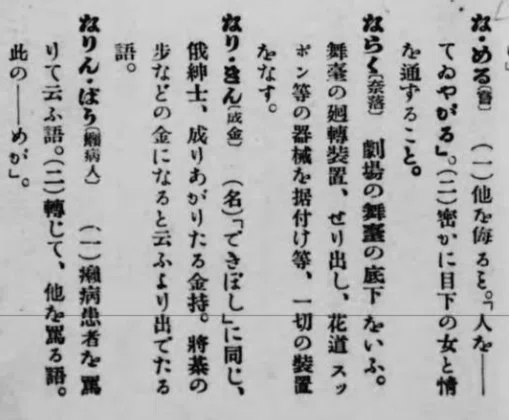 な・める〔嘗〕 (一)他を侮ると。「人を――
てゐやがる」。(二)密かに目下の女と情
を通ずること。
ならく〔奈落〕 劇場の舞臺の底下をいふ。
舞臺の廻轉裝置、せり出し、花道 スッ
ポン等の器械を据付け等、一切の裝置
をなす。
なり・きん〔成金〕 (名)「できぼし」に同じ、
俄紳士、成りあがりたる金持。將棊の
步などの金になると云ふより出でたる
語。
なりん・ばう〔癩病人〕 (一)癩病患者を罵
りて云ふ語。(二)轉じて、他を罵る語。
此の――めが」。